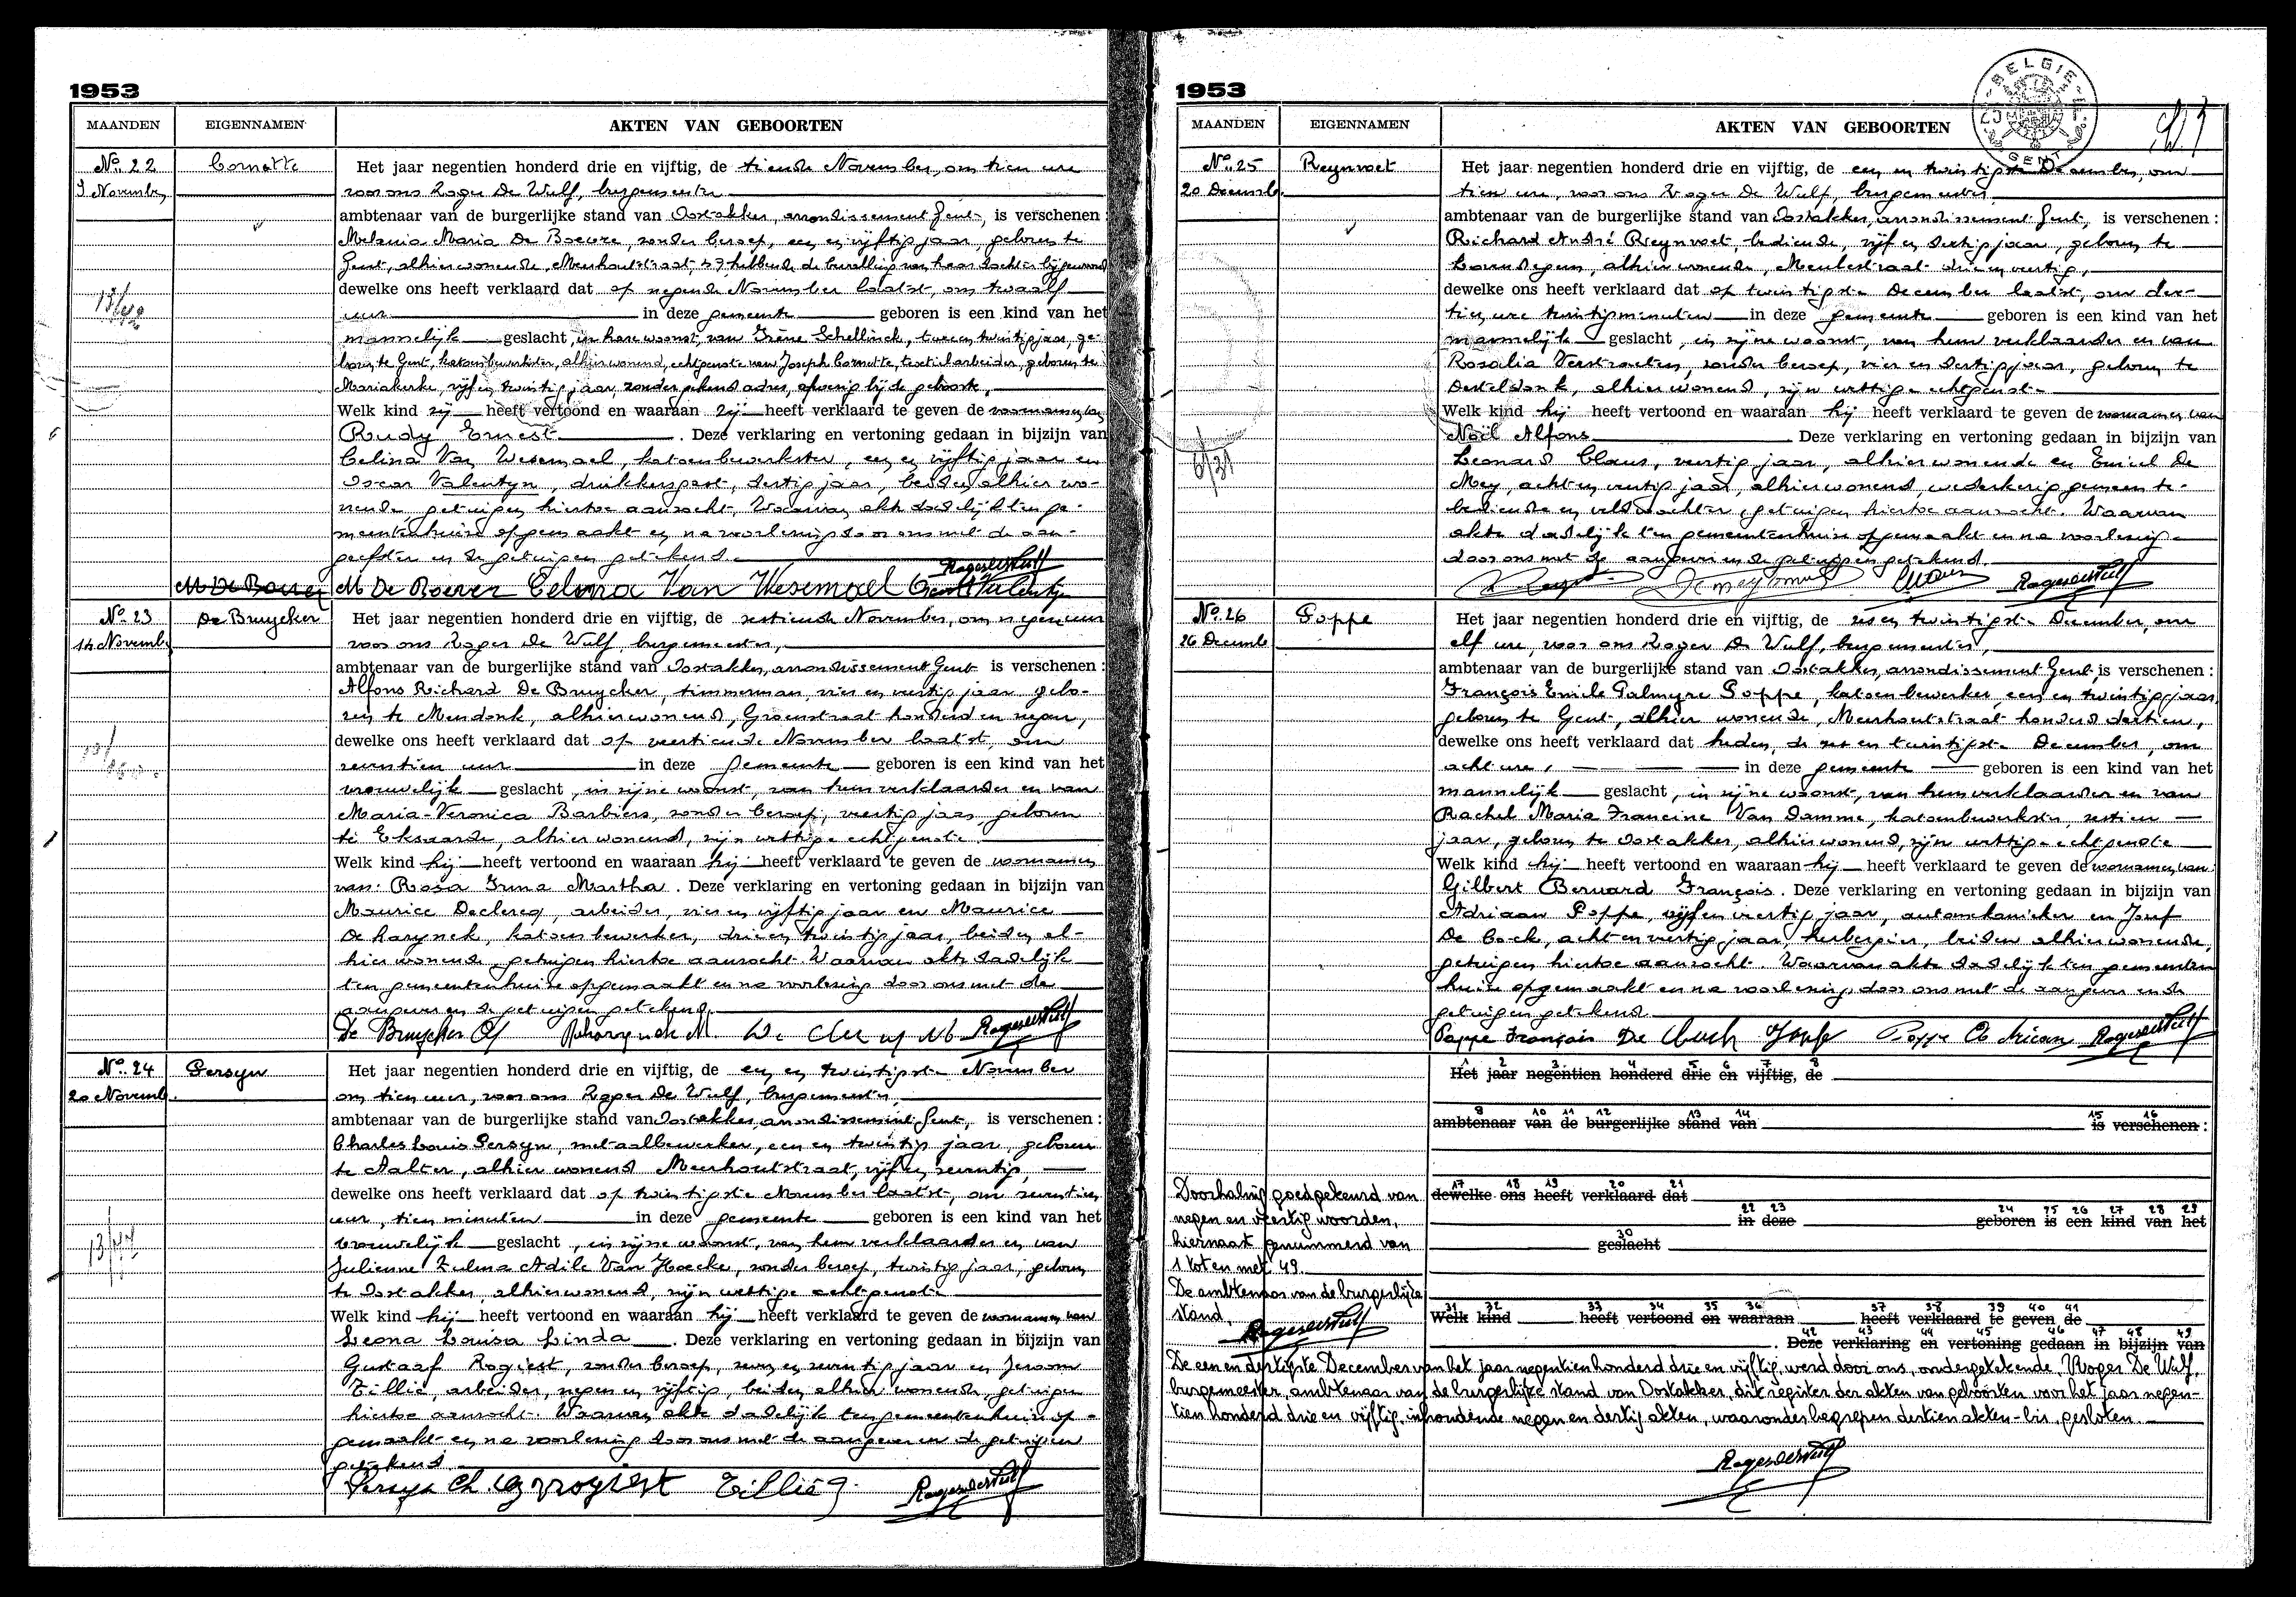 1953
MAANDEN EIGENNAMEN AKTEN VAN GEBOORTEN
No. 22 Cornette Het jaar negentien honderd drie en vijftig, de tiende November, om tien ure
9 November voor ons Roger De Wulf, burgemeester
ambtenaar van de burgerlijke stand van Oostakker, arrondissement Gent, is verschenen :
Melania Maria De Boever, zonder beroep, een en vijftig jaar, geboren te
Gent, alhier wonende, Meerhoutstraat, 57, hebbende de bevalling van haar dochter bijgewoond
dewelke ons heeft verklaard dat op negende November laatst, om twaalf
uur in deze gemeente geboren is een kind van het
mannelijk geslacht, in hare woonst, van Irène Schellinck, twee en twintig jaar, ge-
boren te Gent, katoenbewerkster, alhier wonend, echtgenote van Joseph Cornette, textielarbeider, geboren te
Mariakerke, vijf en twintig jaar, zonder gekend adres, afwezig bij de geboorte,
Welk kind zij heeft vertoond en waaraan zij heeft verklaard te geven de voornamen van
Rudy Ernest . Deze verklaring en vertoning gedaan in bijzijn van
Celina Van Wesemael, katoenbewerkster, een en vijftig jaar en
Oscar Valentyn, drukkersgast, dertig jaar, beiden alhier wo-
nende, getuigen hiertoe aanzocht. Waarvan akte dadelijk ten ge-
meentenhuize opgemaakt en na voorlezing door ons met de aan-
geefster en de getuigen getekend.
M De Boever M De Boever Celina Van Wesemael Valentyn Roger De Wulf
No. 23 De Bruycker Het jaar negentien honderd drie en vijftig, de zestiende November, om negen uur
14 Novemb. voor ons Roger De Wulf, burgemeester,
ambtenaar van de burgerlijke stand van Oostakker, arrondissement Gent is verschenen :
Alfons Richard De Bruycker, timmerman, vier en veertig jaar, gebo-
ren te Mendonk, alhier wonend, Groenstraat honderd en negen,
dewelke ons heeft verklaard dat op veertiende November laatst, om
zeventien uur in deze gemeente geboren is een kind van het
vrouwelijk geslacht, in zijne woonst, van hem verklaarder en van
Maria-Veronica Barbiers, zonder beroep, veertig jaar, geboren
te Eksaarde, alhier wonend, zijn wettige echtgenote.
Welk kind hij heeft vertoond en waaraan hij heeft verklaard te geven de voornamen
van Rosa Irma Martha . Deze verklaring en vertoning gedaan in bijzijn van
Maurice Declercq, arbeider, vier en vijftig jaar en Maurice
Dharynck, katoenbewerker, drie en twintig jaar, beiden al-
hier wonende, getuigen hiertoe aanzocht. Waarvan akte dadelijk
ten gemeentenhuize opgemaakt en na voorlezing door ons met de
aangever en de getuigen getekend.
De Bruycker Al Roger De Wulf
No. 24 Persyn Het jaar negentien honderd drie en vijftig, de een en twintigste November
20 Novemb. om tien uur, voor ons Roger De Wulf, burgemeester,
ambtenaar van de burgerlijke stand van Oostakker, arrondissement Gent, is verschenen :
Charles Louis Persyn, metaalbewerker, een en twintig jaar, geboren
te Aalter, alhier wonend Meerhoutstraat, vijf en zeventig,
dewelke ons heeft verklaard dat op twintigste November laatst, om zeventien
uur, tien minuten in deze gemeente geboren is een kind van het
13/47 vrouwelijk geslacht, in zijne woonst, van hem verklaarder en van
Julienne Zulma Adile Van Hoecke, zonder beroep, twintig jaar, geboren
te Oostakker, alhier wonend, zijn wettige echtgenote
Welk kind hij heeft vertoond en waaraan hij heeft verklaard te geven de voornamen van
Leona Louisa Linda . Deze verklaring en vertoning gedaan in bijzijn van
Gustaaf Rogiest, zonder beroep, zeven en zeventig jaar en Jeroom
Tillie, arbeider, negen en vijftig, beiden alhier wonende, getuigen
hiertoe aanzocht. Waarvan akte dadelijk ten gemeentenhuize op-
gemaakt en na voorlezing door ons met de aangever en de getuigen
getekend.
Persyn Ch. G Rogiest Tillie Roger De Wulf
1953
BELGIE GENT
MAANDEN EIGENNAMEN AKTEN VAN GEBOORTEN
No. 25 Reynvoet Het jaar negentien honderd drie en vijftig, de een en twintigste December, om
20 Decemb. tien ure, voor ons Roger De Wulf, burgemeester
ambtenaar van de burgerlijke stand van Oostakker, arrondissement Gent, is verschenen :
Richard André Reynvoet, bediende, vijf en dertig jaar, geboren te
Lovendegem, alhier wonende, Meulestraat drie en veertig,
dewelke ons heeft verklaard dat op twintigste December laatst, om der-
tien ure twintig minuten in deze gemeente geboren is een kind van het
mannelijk geslacht, in zijne woonst, van hem verklaarder en van
Rosalia Verstraeten, zonder beroep, vier en dertig jaar, geboren te
Desteldonk, alhier wonend, zijn wettige echtgenote
Welk kind hij heeft vertoond en waaraan hij heeft verklaard te geven de voornamen van
Noël Alfons . Deze verklaring en vertoning gedaan in bijzijn van
6/31 Leonard Claus, veertig jaar, alhier wonende en Emiel De
Mey, acht en veertig jaar, alhier wonend, wederkerig gemeente-
bediende en veldwachter, getuigen hiertoe aanzocht. Waarvan
akte dadelijk ten gemeentenhuize opgemaakt en na voorlezing
door ons met de aangever en de getuigen getekend.
Roger De Wulf
No. 26 Poppe Het jaar negentien honderd drie en vijftig, de zes en twintigste December, om
26 Decemb elf ure, voor ons Roger De Wulf, burgemeester,
ambtenaar van de burgerlijke stand van Oostakker, arrondissement Gent, is verschenen :
François Emile Palmyre Poppe, katoenbewerker, een en twintig jaar,
geboren te Gent, alhier wonende, Meerhoutstraat honderd dertien,
dewelke ons heeft verklaard dat heden, de zes en twintigste December, om
acht ure, in deze gemeente geboren is een kind van het
mannelijk geslacht, in zijne woonst, van hem verklaarder en van
Rachel Maria Francine Van Damme, katoenbewerkster, zestien
jaar, geboren te Oostakker, alhier wonend, zijn wettige echtgenote
Welk kind hij heeft vertoond en waaraan hij heeft verklaard te geven de voornamen van
Gilbert Bernard François . Deze verklaring en vertoning gedaan in bijzijn van
Adriaan Poppe, vijf en veertig jaar, automekanieker en Jozef
De Cock, acht en veertig jaar, herbergier, beiden alhier wonende,
getuigen hiertoe aanzocht. Waarvan akte dadelijk ten gemeenten
huize opgemaakt en na voorlezing door ons met de aangever en de
getuigen getekend
Poppe François Poppe Adriaan Roger De Wulf
1 2 3 4 5 6 7 8
Het jaar negentien honderd drie en vijftig, de
9 10 11 12 13 14 15 16
ambtenaar van de burgerlijke stand van is verschenen :
17 18 19 20 21
Doorhaling goedgekeurd van dewelke ons heeft verklaard dat
22 23 24 25 26 27 28 29
negen en veertig woorden, in deze geboren is een kind van het
30
hiernaast genummerd van geslacht
1 tot en met 49.
De ambtenaar van de burgerlijke
31 32 33 34 35 36 37 38 39 40 41
stand, Welk kind heeft vertoond en waaraan heeft verklaard te geven de
42 43 44 45 46 47 48 49
Roger De Wulf . Deze verklaring en vertoning gedaan in bijzijn van
De een en dertigste December van het jaar negentien honderd drie en vijftig, werd door ons, ondergetekende, Roger De Wulf,
burgemeester, ambtenaar van de burgerlijke stand van Oostakker, dit register der akten van geboorten voor het jaar negen-
tien honderd drie en vijftig, inhoudende negen en dertig akten, waaronder begrepen dertien akten-bis, gesloten.
Roger De Wulf